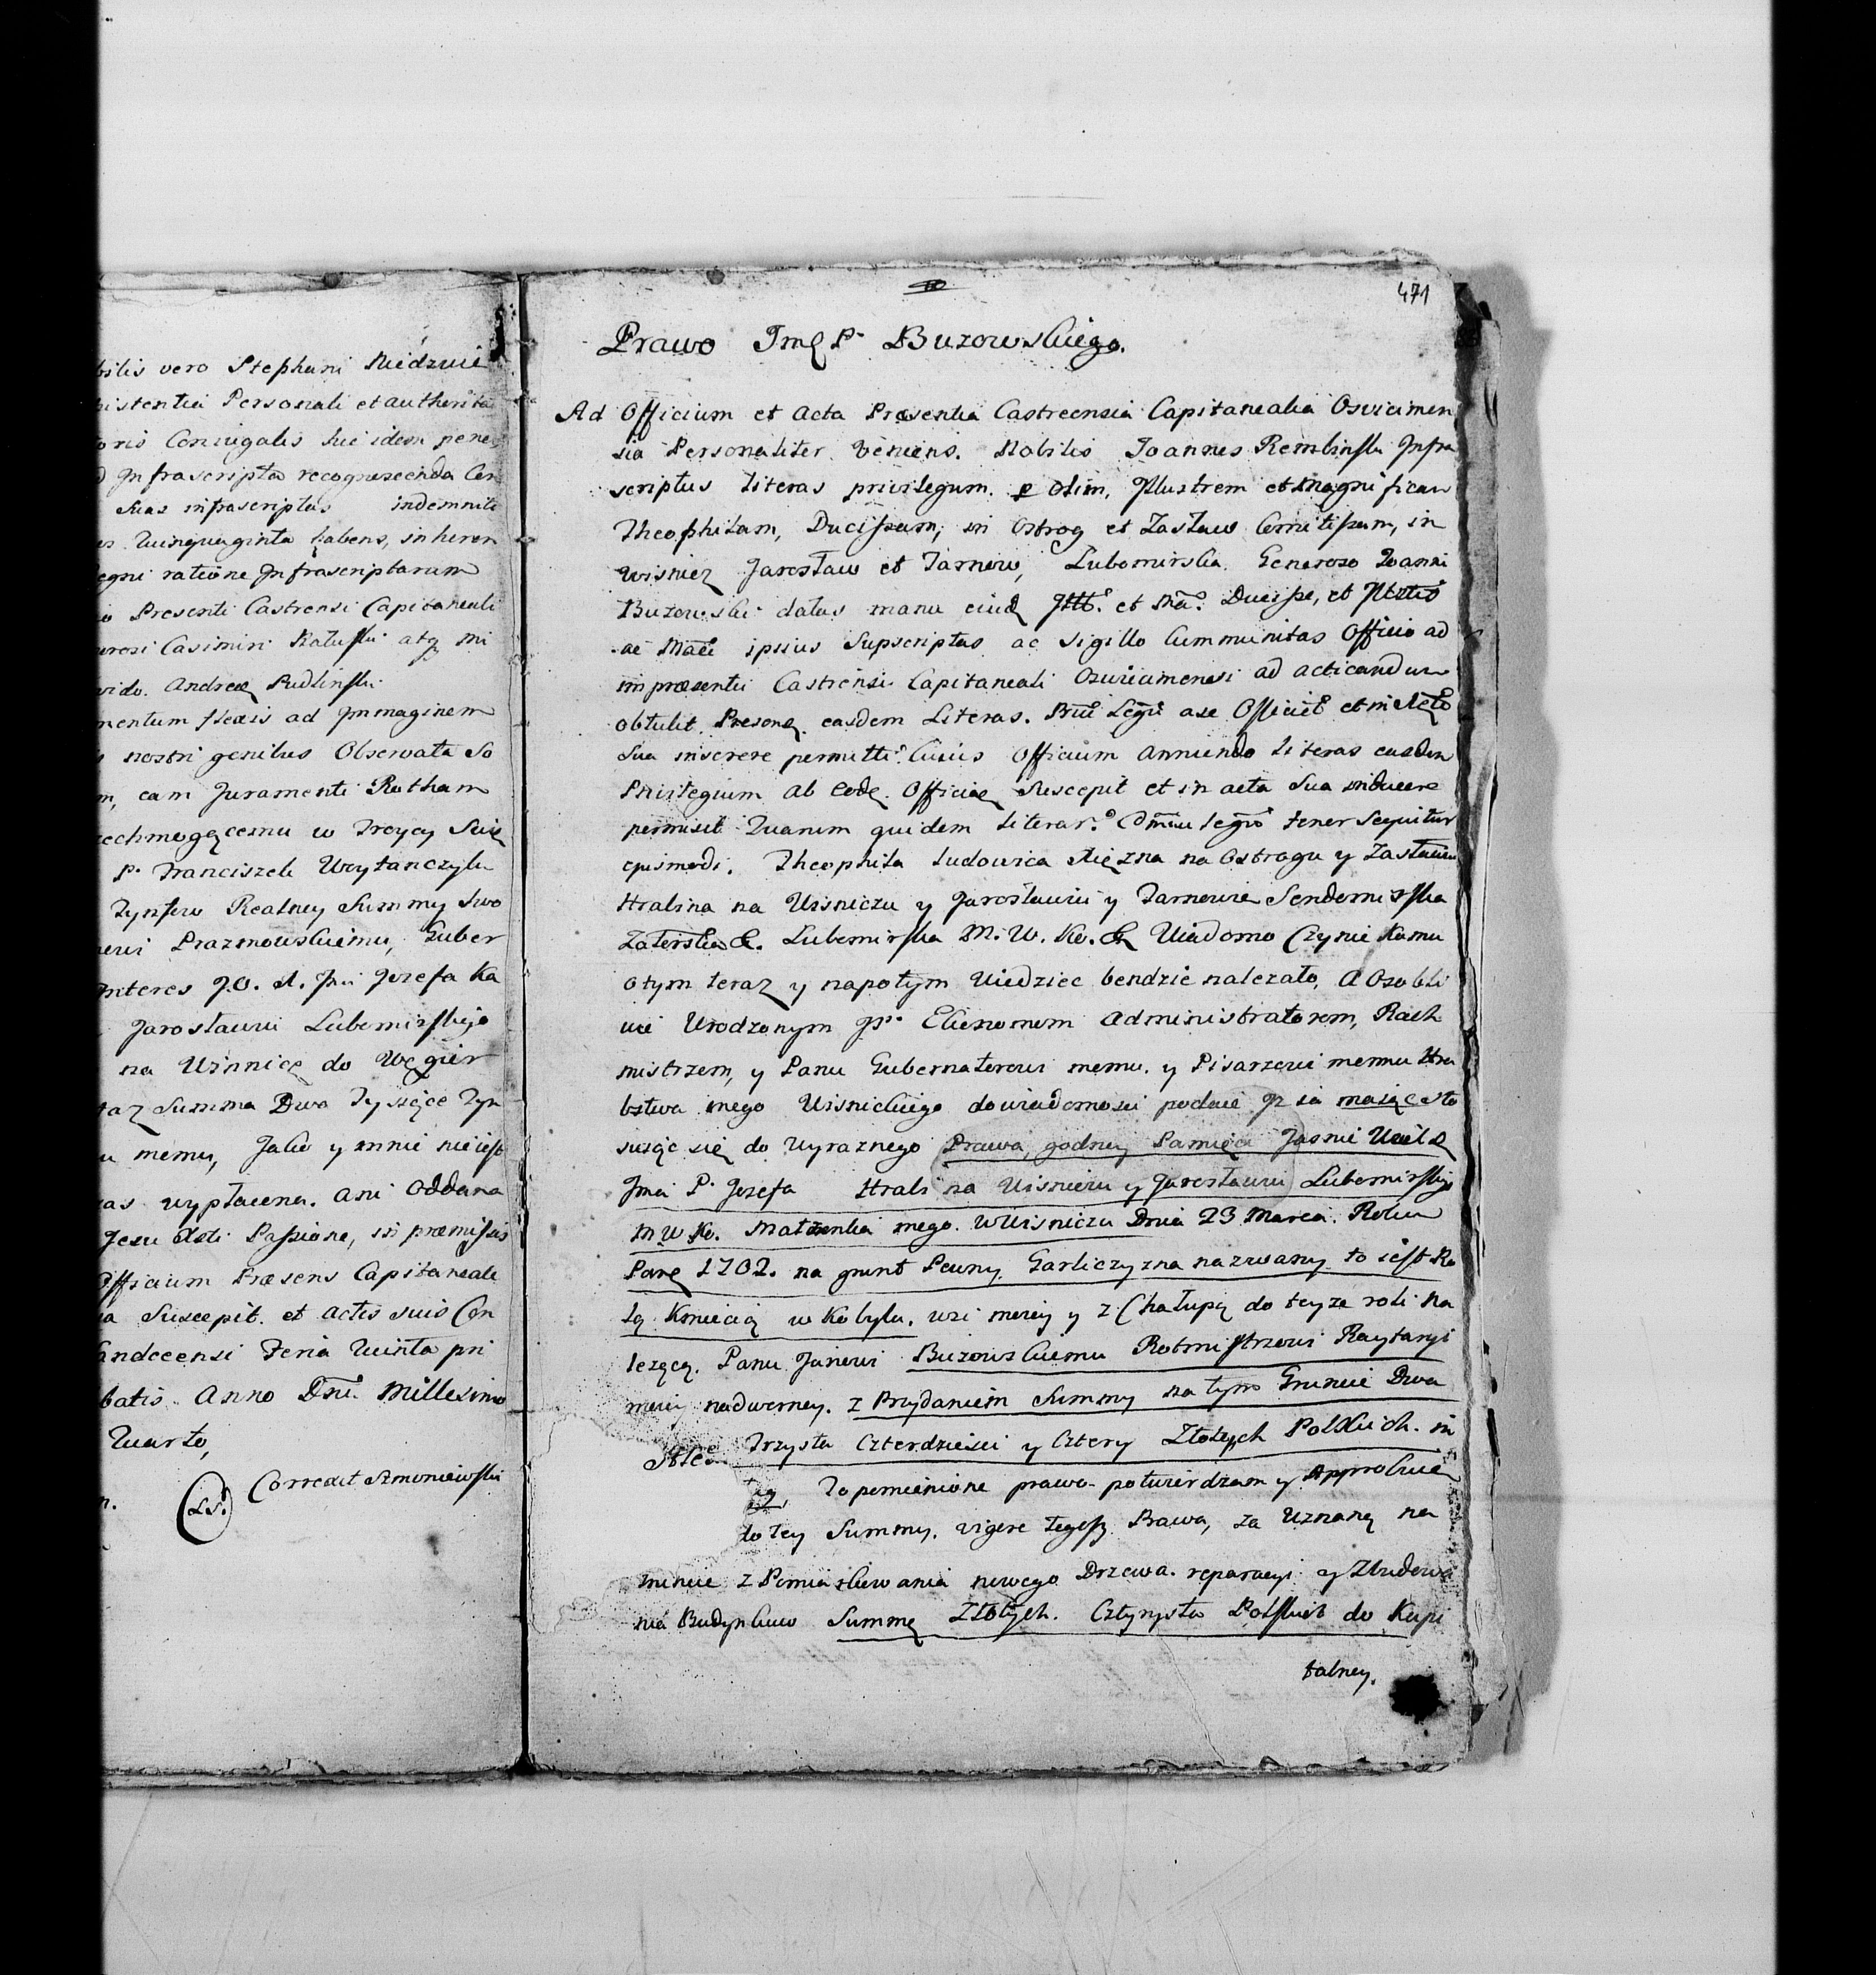 bilis vero Stephani Niedzwie
sistentia Personali et authorita
toris Coniugalis hic idem pene
d Infrascripta recognoscenda Cer
Suas infrascriptas indemnita
Quinquaginta habens, inheren
egni ratione Infrascriptarum
io Presenti Castrensi Capitaneali
erosi Casimiri Ratuski atq mi
vido. Andreæ Rudlinski
mentum flexis ad Immaginem
nostri genibus Observata So
m, eam Juramenti Rotham
echmogącemu w Troycy Swię
P. Franciszek Wrytanczyk
Tynfow Realney Summy Dwo
Prazmowskiemu, Guber
Interes J.O. Jozefa Ka
Jarosławiu Lubomirskiego
na Winnicę do Węgier
Summa Dwa Tysiące Tyn
u memu, Jako y mnie nie iest
as wypłacona. ani Oddana
Jesu Xsti Passione, in præmissis
Officium Præsens Capitaneale
a Suscepit. et actis suis Con
andecensi Feria Quinta pri
batis. Anno Dni. Millesimo
Quarto,
Correxit Szmoniewski
(L.S.)
471
Prawo Jmę P. Buzowskiego.
Ad Officium et Acta Præsentia Castrensia Capitanealia Osviecimen
sia Personaliter Veniens. Nobilis Joannes Remlinski Infra
scriptus literas privilegum. p olim, Illustrem et Magnificam
Theophilam, Ducissam, in Ostrog et Zasław Comitissam, in
Wisnicz Jarosław et Tarnow, Lubomirska. Generoso Joanni
Buzowski datas manu eiud Illt. et Ma. Ducisse, et
ac ipsius Supscriptas ac Sigillo Cummunitas Officio ad
in præsenti Castrensi Capitaneali Oswiecimensi ad acticandum
obtulit. easdem Literas. a se et in
Sua inserere permitti. Cuius Officium annuendo literas easdem
Privilegium ab eode. Offerente Suscepit et in acta Sua inducere
permisit Quarum quidem literar. tenor Sequitur
ejusmodi. Theophila Ludowica Xiężna na Ostrogu y Zasławiu
Hrabina na Wisniczu y Jarosławiu y Tarnowie Sendomirska
Zatorska &. Lubomirska M. W. Ko. & Wiadomo Czynie Komu
o tym teraz y napotym Wiedziec bendzie nalezało, a Osobli
wie Urodzonym Ekonomom Administratorom, Rach
mistrzom, y Panu Gubernatorowi memu. y Pisarzowi memu Hra
bstwa mego Wisnickiego do wiadomosci podaie Iz ia maiąc sto
suiąc się do Wyraznego Prawa, godney Pamięci Jasnie Wielk
Jmci P. Jozefa Hrabi na Wisniczu y Jarosławiu Lubomirskiego
M W Ko. Małzonka mego. w Wisniczu Dnia 23 Marca. Roku
Panę 1702. na grunt Pewny Garliczyzna nazwany to iest Ro
lą Kmiecią w Kobylu, wsi moiey y z Chałupą do teyze roli na
lezącą. Panu Janowi Buzowskiemu Rotmistrzowi Raytaryi
moiey nadworney. z Przydaniem Summy na tym Gruncie Dwa
Trzysta Czterdziesci y Cztery Złotych Polskich. in
zą, Zopomienione prawo potwierdzam y Approbuie
to tey Summy. vigore tegosz Prawa, za Uznaną na
gruncie z Pomiarkowania nowego Drzewa. reparacyi y Zbudowa
nia Budynkuw Summę Złotych. Cztyrysta Polskich do Kapi
talney.